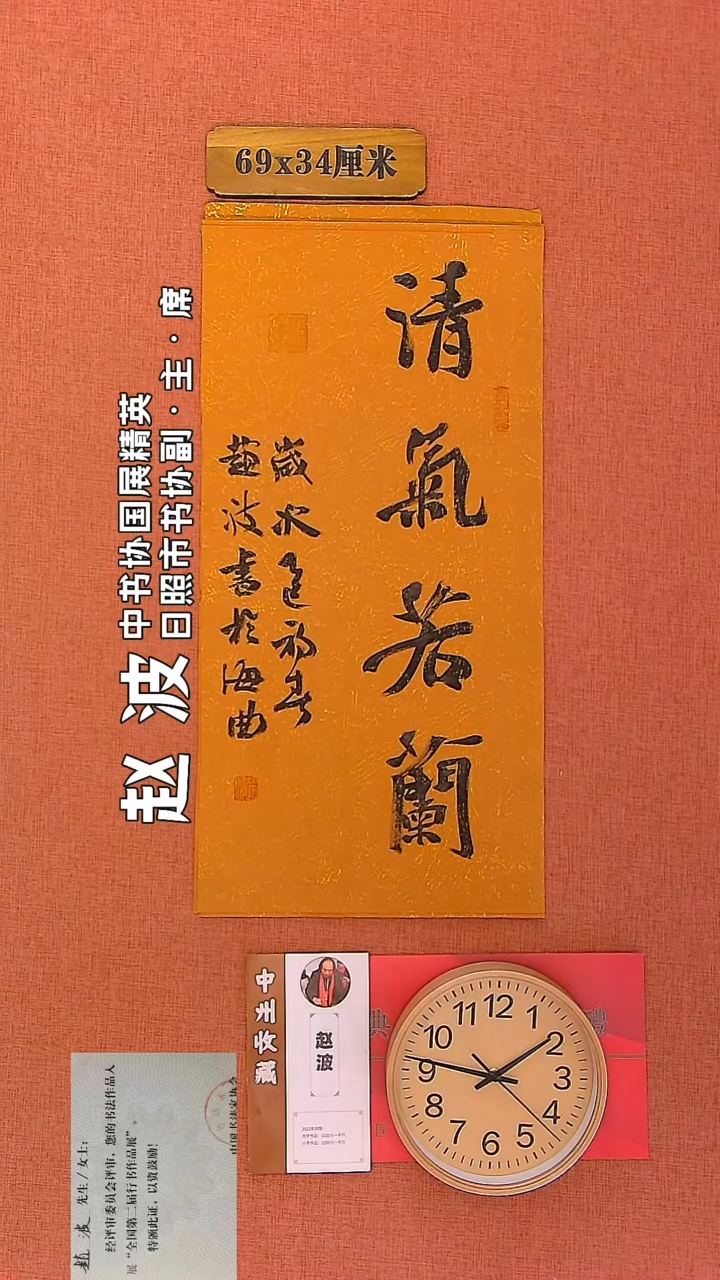 69x34厘米
清氣若蘭
歲次乙巳初春
趙波書於海曲
中书协国展精英
日照市书协副·主·席
赵波
赵波
11 12 1
10 2
9 3
8 4
7 6 5
趙波 先生/女士:
经评审委员会评审,您的书法作品入
展“全国第二届行书作品展”。
特颁此证,以资鼓励!